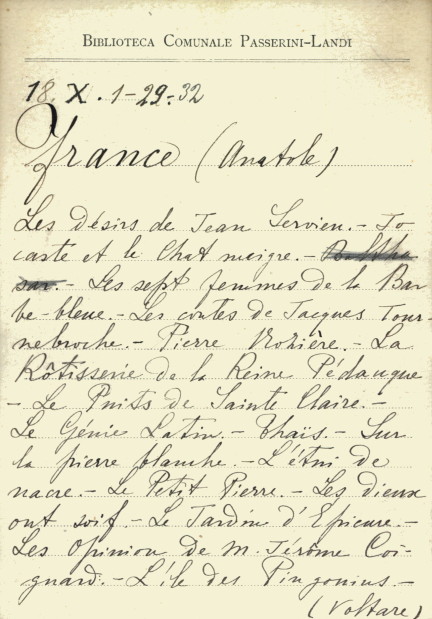 BIBLIOTECA COMUNALE PASSERINI-LANDI
18. X. 1-29-32
France (Anatole)
Les désirs de Jean Servien. - Jo
caste et le Chat maigre. - Baltha
sar. - Les sept femmes de la Bar
be-bleue. - Les contes de Jacques Tour-
nebroche. - Pierre Nozière. - La
Rôtisserie de la Reine Pédauque
- Le Puits de Sainte Claire. -
Le Génie Latin. - Thaïs. - Sur
la pierre blanche. - L'étui de
nacre. - Le Petit Pierre. - Les dieux
ont soif. - Le Jardin d'Epicure. -
Les Opinion de M. Jérôme Coi-
gnard. - L'île des Pingouins. -
(Voltare)